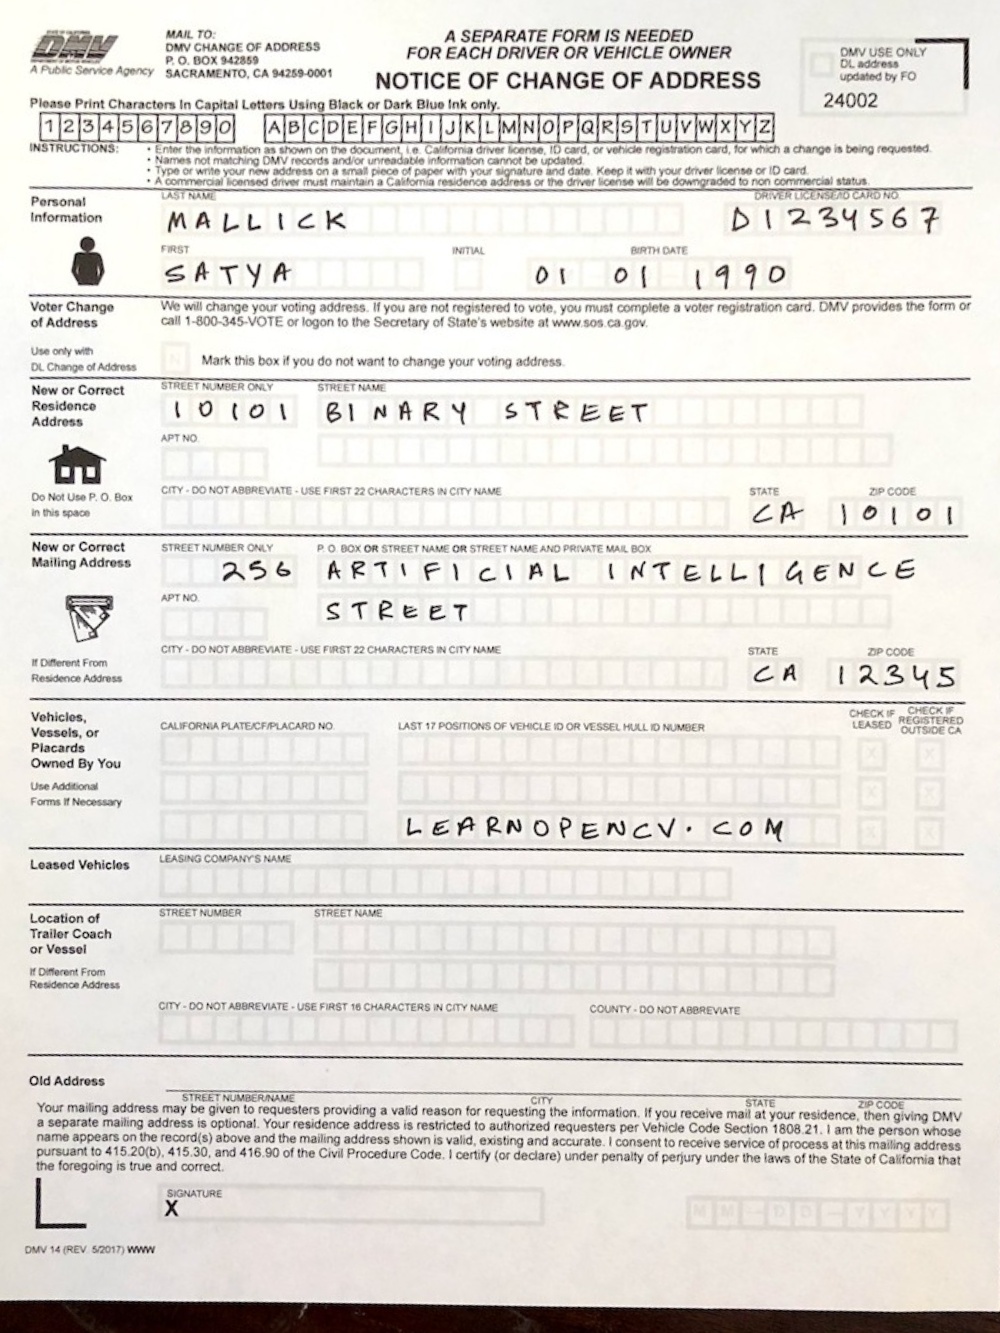 STATE OF CALIFORNIA
DMV
DEPARTMENT OF MOTOR VEHICLES
A Public Service Agency
MAIL TO:
DMV CHANGE OF ADDRESS
P. O. BOX 942859
SACRAMENTO, CA 94259-0001
A SEPARATE FORM IS NEEDED
FOR EACH DRIVER OR VEHICLE OWNER
NOTICE OF CHANGE OF ADDRESS
DMV USE ONLY
DL address
updated by FO
24002
Please Print Characters In Capital Letters Using Black or Dark Blue Ink only.
1 2 3 4 5 6 7 8 9 0 A B C D E F G H I J K L M N O P Q R S T U V W X Y Z
INSTRUCTIONS: • Enter the information as shown on the document, i.e. California driver license, ID card, or vehicle registration card, for which a change is being requested.
• Names not matching DMV records and/or unreadable information cannot be updated.
• Type or write your new address on a small piece of paper with your signature and date. Keep it with your driver license or ID card.
• A commercial licensed driver must maintain a California residence address or the driver license will be downgraded to non commercial status.
Personal
Information
LAST NAME DRIVER LICENSE/ID CARD NO.
MALLICK D1234567
FIRST INITIAL BIRTH DATE
SATYA 01 01 1990
Voter Change
of Address
We will change your voting address. If you are not registered to vote, you must complete a voter registration card. DMV provides the form or
call 1-800-345-VOTE or logon to the Secretary of State's website at www.sos.ca.gov.
Use only with
DL Change of Address
N Mark this box if you do not want to change your voting address.
New or Correct
Residence
Address
STREET NUMBER ONLY STREET NAME
10101 BINARY STREET
APT NO.
Do Not Use P. O. Box
in this space
CITY - DO NOT ABBREVIATE - USE FIRST 22 CHARACTERS IN CITY NAME STATE ZIP CODE
CA 10101
New or Correct
Mailing Address
STREET NUMBER ONLY P. O. BOX OR STREET NAME OR STREET NAME AND PRIVATE MAIL BOX
256 ARTIFICIAL INTELLIGENCE
APT NO.
STREET
If Different From
Residence Address
CITY - DO NOT ABBREVIATE - USE FIRST 22 CHARACTERS IN CITY NAME STATE ZIP CODE
CA 12345
Vehicles,
Vessels, or
Placards
Owned By You
Use Additional
Forms If Necessary
CALIFORNIA PLATE/CF/PLACARD NO. LAST 17 POSITIONS OF VEHICLE ID OR VESSEL HULL ID NUMBER
CHECK IF
LEASED
CHECK IF
REGISTERED
OUTSIDE CA
X X
X X
LEARNOPENCV.COM X X
Leased Vehicles
LEASING COMPANY'S NAME
Location of
Trailer Coach
or Vessel
If Different From
Residence Address
STREET NUMBER STREET NAME
CITY - DO NOT ABBREVIATE - USE FIRST 16 CHARACTERS IN CITY NAME COUNTY - DO NOT ABBREVIATE
Old Address
STREET NUMBER/NAME CITY STATE ZIP CODE
Your mailing address may be given to requesters providing a valid reason for requesting the information. If you receive mail at your residence, then giving DMV
a separate mailing address is optional. Your residence address is restricted to authorized requesters per Vehicle Code Section 1808.21. I am the person whose
name appears on the record(s) above and the mailing address shown is valid, existing and accurate. I consent to receive service of process at this mailing address
pursuant to 415.20(b), 415.30, and 416.90 of the Civil Procedure Code. I certify (or declare) under penalty of perjury under the laws of the State of California that
the foregoing is true and correct.
SIGNATURE
X
M M — D D — Y Y Y Y
DMV 14 (REV. 5/2017) WWW